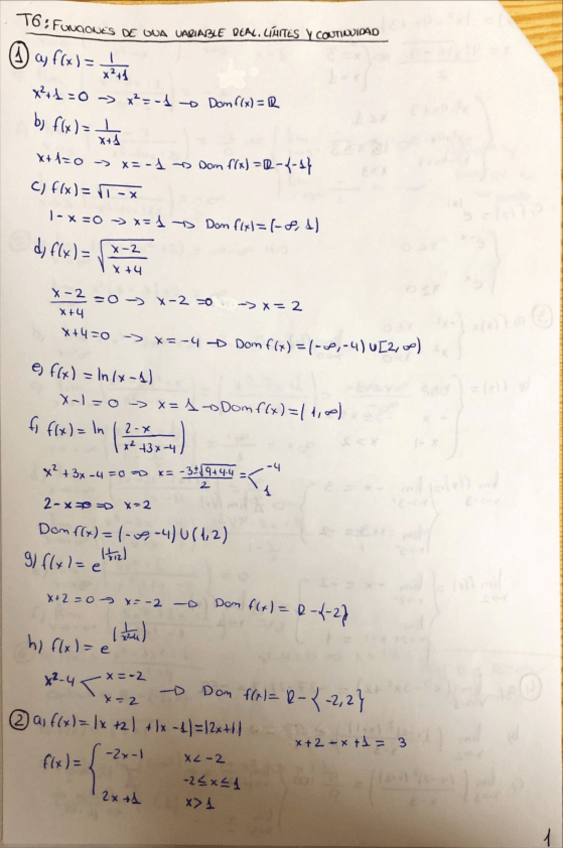 T6: FUNCIONES DE UNA VARIABLE REAL. LÍMITES Y CONTINUIDAD
① a) f(x) = 1/(x²+1)
x²+1 = 0 → x² = -1 → Dom f(x) = ℝ
b) f(x) = 1/(x+1)
x+1 = 0 → x = -1 → Dom f(x) = ℝ-{-1}
c) f(x) = √(1-x)
1-x = 0 → x = 1 → Dom f(x) = (-∞, 1)
d) f(x) = √((x-2)/(x+4))
(x-2)/(x+4) = 0 → x-2 = 0 → x = 2
x+4 = 0 → x = -4 → Dom f(x) = (-∞, -4) ∪ [2, ∞)
e) f(x) = ln(x-1)
x-1 = 0 → x = 1 → Dom f(x) = (1, ∞)
f) f(x) = ln((2-x)/(x²+3x-4))
x²+3x-4 = 0 ⇒ x = (-3±√(9+4·4))/2 = < -4
1
2-x = 0 ⇒ x = 2
Dom f(x) = (-∞, -4) ∪ (1, 2)
g) f(x) = e^(1/(x+2))
x+2 = 0 → x = -2 → Dom f(x) = ℝ-{-2}
h) f(x) = e^(1/(x²-4))
x²-4 < x = -2
x = 2 → Dom f(x) = ℝ-{-2, 2}
② a) f(x) = |x+2| + |x-1| = |2x+1|
x+2-x+1 = 3
f(x) = { -2x-1 x < -2
-2 ≤ x ≤ 1
2x+1 x > 1
1